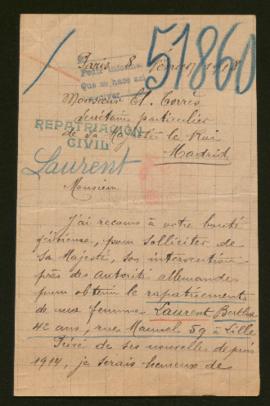 51860
Paris 8
Pedir informe
Que se hace
Monsieur El. Torrès
Secrétaire particulier
REPATRIACION
de Sa Majesté le Roi
CIVIL
Madrid
Laurent
Monsieur
J'ai recours à votre bonté
pour solliciter de
Sa Majesté, son intervention
près des autorité allemandes
pour obtenir le rapatriement
de ma femme Laurent Berthe
42 ans, rue Manuel 59 à Lille
Privé de ses nouvelles depuis
1914, je serais heureux de